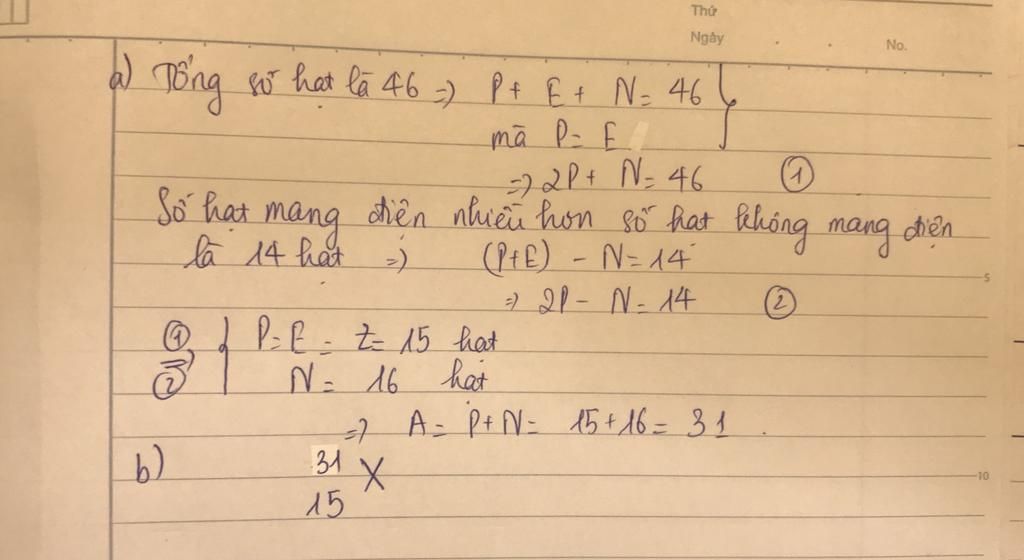 Thứ
Ngày . . No.
a) Tổng số hạt là 46 => P + E + N = 46
mà P = E
=> 2P + N = 46 ①
Số hạt mang điện nhiều hơn số hạt không mang điện
là 14 hạt => (P+E) - N = 14
5
=> 2P - N = 14 ②
① P = E = Z = 15 hạt
② => N = 16 hạt
=> A = P + N = 15 + 16 = 31 .
b) 31 X
10
15